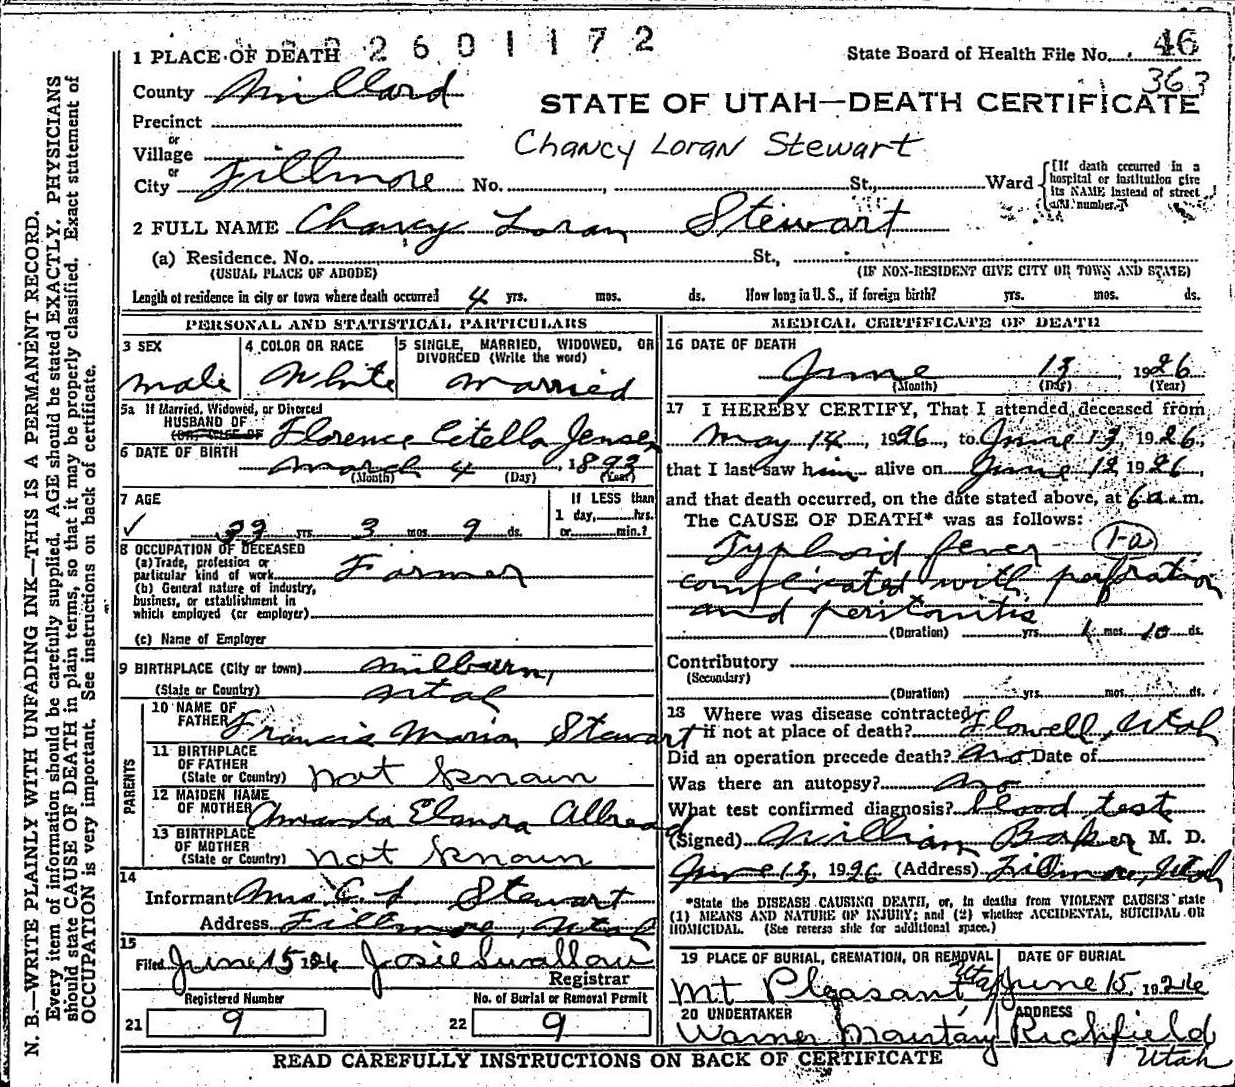 2601172
1 PLACE OF DEATH
State Board of Health File No. 46
363
County Millard
STATE OF UTAH—DEATH CERTIFICATE
Precinct
or
Village
Chancy Loran Stewart
or
City Fillmore No. , St., Ward
[If death occurred in a hospital or institution give its NAME instead of street and number.]
2 FULL NAME Chancy Loran Stewart
(a) Residence. No. St.,
(USUAL PLACE OF ABODE) (IF NON-RESIDENT GIVE CITY OR TOWN AND STATE)
Length of residence in city or town where death occurred 4 yrs. mos. ds. How long in U. S., if foreign birth? yrs. mos. ds.
PERSONAL AND STATISTICAL PARTICULARS
3 SEX
male
4 COLOR OR RACE
White
5 SINGLE, MARRIED, WIDOWED, OR DIVORCED (Write the word)
married
5a If Married, Widowed, or Divorced
HUSBAND OF
(OR) WIFE OF Florence Estella Jensen
6 DATE OF BIRTH
March 4, 1893
(Month) (Day) (Year)
7 AGE
✓ 33 yrs. 3 mos. 9 ds.
If LESS than
1 day, hrs.
or min.?
8 OCCUPATION OF DECEASED
(a) Trade, profession or
particular kind of work Farmer
(b) General nature of industry,
business, or establishment in
which employed (or employer)
(c) Name of Employer
9 BIRTHPLACE (City or town) Milburn,
(State or Country) Utah
PARENTS
10 NAME OF
FATHER Francis Marion Stewart
11 BIRTHPLACE
OF FATHER
(State or Country) not known
12 MAIDEN NAME
OF MOTHER Amanda Elanora Allred
13 BIRTHPLACE
OF MOTHER
(State or Country) not known
14
Informant Mrs C. L Stewart
Address Fillmore, Utah
15
Filed June 15 1926 Josie Swallow
Registrar
Registered Number
21 9
No. of Burial or Removal Permit
22 9
MEDICAL CERTIFICATE OF DEATH
16 DATE OF DEATH
June 13, 1926
(Month) (Day) (Year)
17 I HEREBY CERTIFY, That I attended deceased from
May 14, 1926, to June 13, 1926,
that I last saw him alive on June 12 1926,
and that death occurred, on the date stated above, at 6 a.m.
The CAUSE OF DEATH* was as follows:
Typhoid fever 1-a
complicated with perforation
and peritonitis
(Duration) yrs. 1 mos. 10 ds.
Contributory
(Secondary)
(Duration) yrs. mos. ds.
18 Where was disease contracted
if not at place of death? Flowell, Utah
Did an operation precede death? no Date of
Was there an autopsy? no
What test confirmed diagnosis? blood test
(Signed) William Baker M. D.
June 13, 1926 (Address) Fillmore, Utah
*State the DISEASE CAUSING DEATH, or, in deaths from VIOLENT CAUSES state
(1) MEANS AND NATURE OF INJURY; and (2) whether ACCIDENTAL, SUICIDAL OR
HOMICIDAL. (See reverse side for additional space.)
19 PLACE OF BURIAL, CREMATION, OR REMOVAL
Mt Pleasant Utah
DATE OF BURIAL
June 15, 1926
20 UNDERTAKER
Warner Mourtary
ADDRESS
Richfield
Utah
READ CAREFULLY INSTRUCTIONS ON BACK OF CERTIFICATE
N. B.—WRITE PLAINLY WITH UNFADING INK—THIS IS A PERMANENT RECORD.
Every item of information should be carefully supplied. AGE should be stated EXACTLY. PHYSICIANS
should state CAUSE OF DEATH in plain terms, so that it may be properly classified. Exact statement of
OCCUPATION is very important. See instructions on back of certificate.